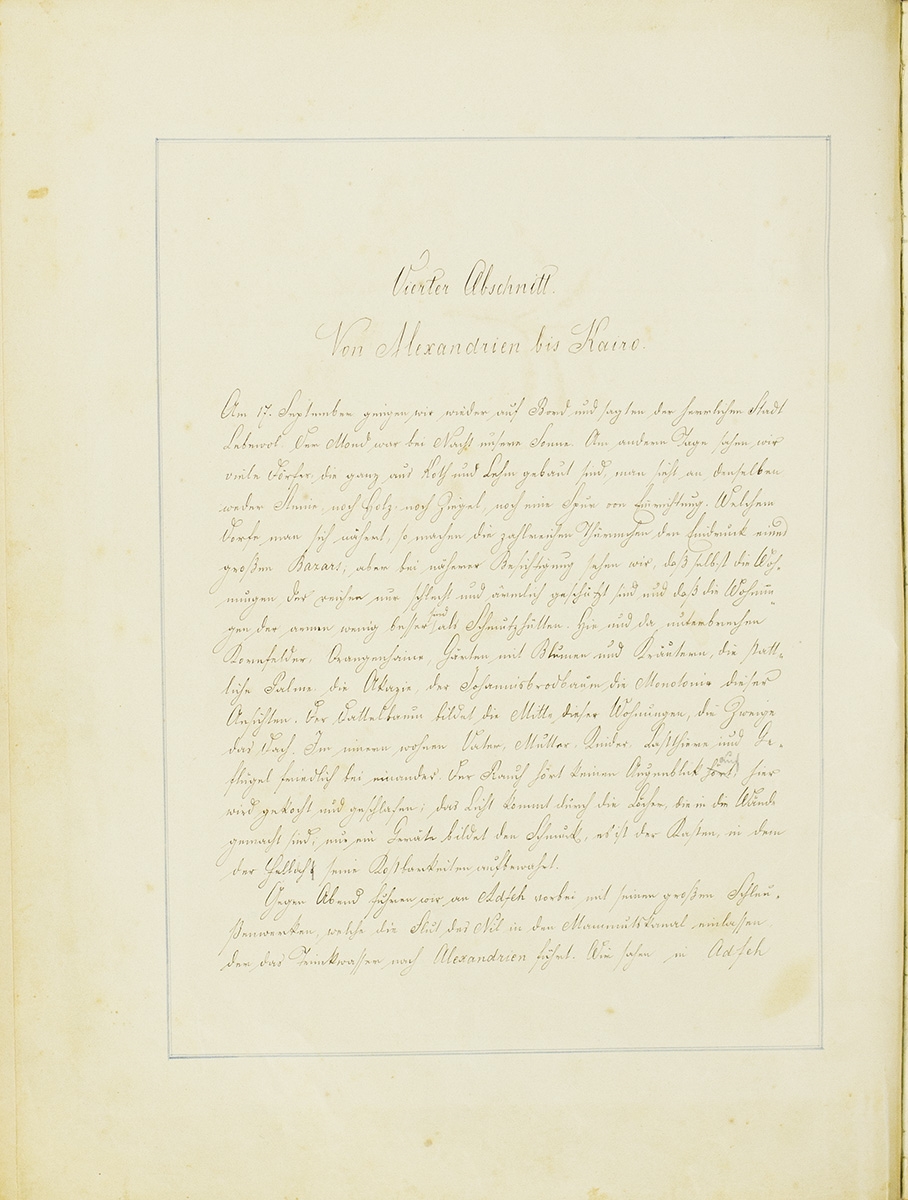 Vierter Abschnitt.
Von Alexandrien bis Kairo.
Am 17. September giengen wir wieder auf Bord und sagten der herrlichen Stadt
Lebewol. Der Mond war bei Nacht unsere Sonne. Am andern Tage sahen wir
viele Dörfer, die ganz aus Koth und Lehm gebaut sind, man sieht an denselben
weder Steine, noch Holz, noch Ziegel, noch eine Spur von Einrichtung. Welchem
Dorfe man sich nähert, so machen die zahlreichen Thürmchen den Eindruck eines
großen Bazars; aber bei näherer Besichtigung sehen wir, daß selbst die Woh-
nungen der reichen nur schlecht und ärmlich geschützt sind und daß die Wohnun-
gen der armen wenig besser sind als Schmutzhütten. Hie und da unterbrechen
Kornfelder, Orangenhaine, Gärten mit Blumen und Kräutern, die statt-
liche Palme, die Akazie, der Johannisbrodbaum die Monotonie dieser
Ansichten. Der Dattelbaum bildet die Mitte dieser Wohnungen, die Zweige
das Dach. Im innern wohnen Vater, Mutter, Kinder, Lastthiere und Ge-
flügel friedlich bei einander. Der Rauch hört keinen Augenblick auf, hier
wird gekocht und geschlafen; das Licht kommt durch die Löcher, die in die Wände
gemacht sind; nur ein Geräte bildet den Schmuck, es ist der Kasten, in dem
der Fellach seine Kostbarkeiten aufbewahrt.
Gegen Abend fuhren wir an Adfeh vorbei mit seinen großen Schleu-
ßenwerken, welche die Flut des Nil in den Mammutskanal einlassen,
der das Trinkwasser nach Alexandrien führt. Wir sahen in Adfeh